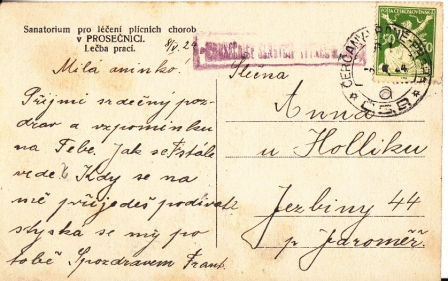 Sanatorium pro léčení plicních chorob
v PROSEČNICI.
Léčba prací.
Milá aninko!
Přijmi srdečný poz-
drav a vzpomínku
na Tebe. Jak se Ti stále
vede? Kdy se na
mě přijedeš podívat
stýská se mý po
tobě Spozdravem Frant.
Slečna
Anna
u Holliku
Jezbiny 44
p. Jaroměř.
ČSR